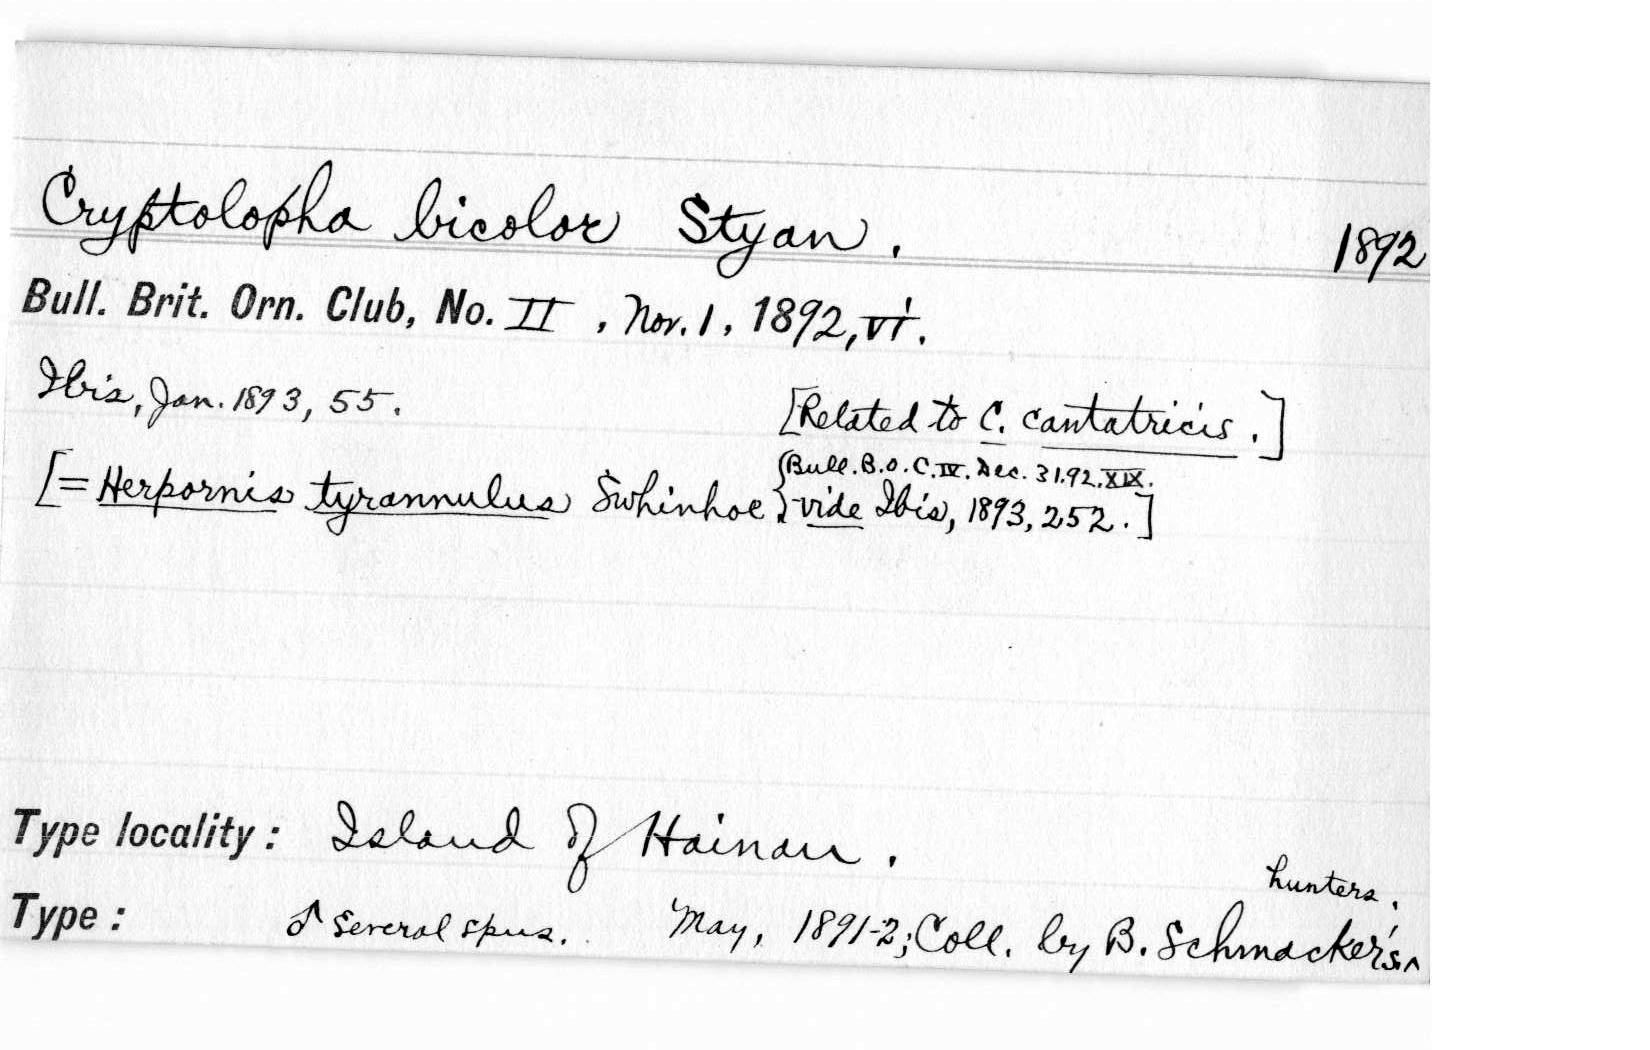 Cryptolopha bicolor Styan. 1892
Bull. Brit. Orn. Club, No. II, Nov. 1, 1892, vi.
Ibis, Jan. 1893, 55.
[Related to C. cantatricis.]
{Bull. B.O.C. IV. Dec. 31.92. XIX.
[= Herpornis tyrannulus Swhinhoe } vide Ibis, 1893, 252.]
Type locality: Island of Hainan.
hunters.
Type: ♂ several spns. May, 1891-2; Coll. by B. Schmacker's ^